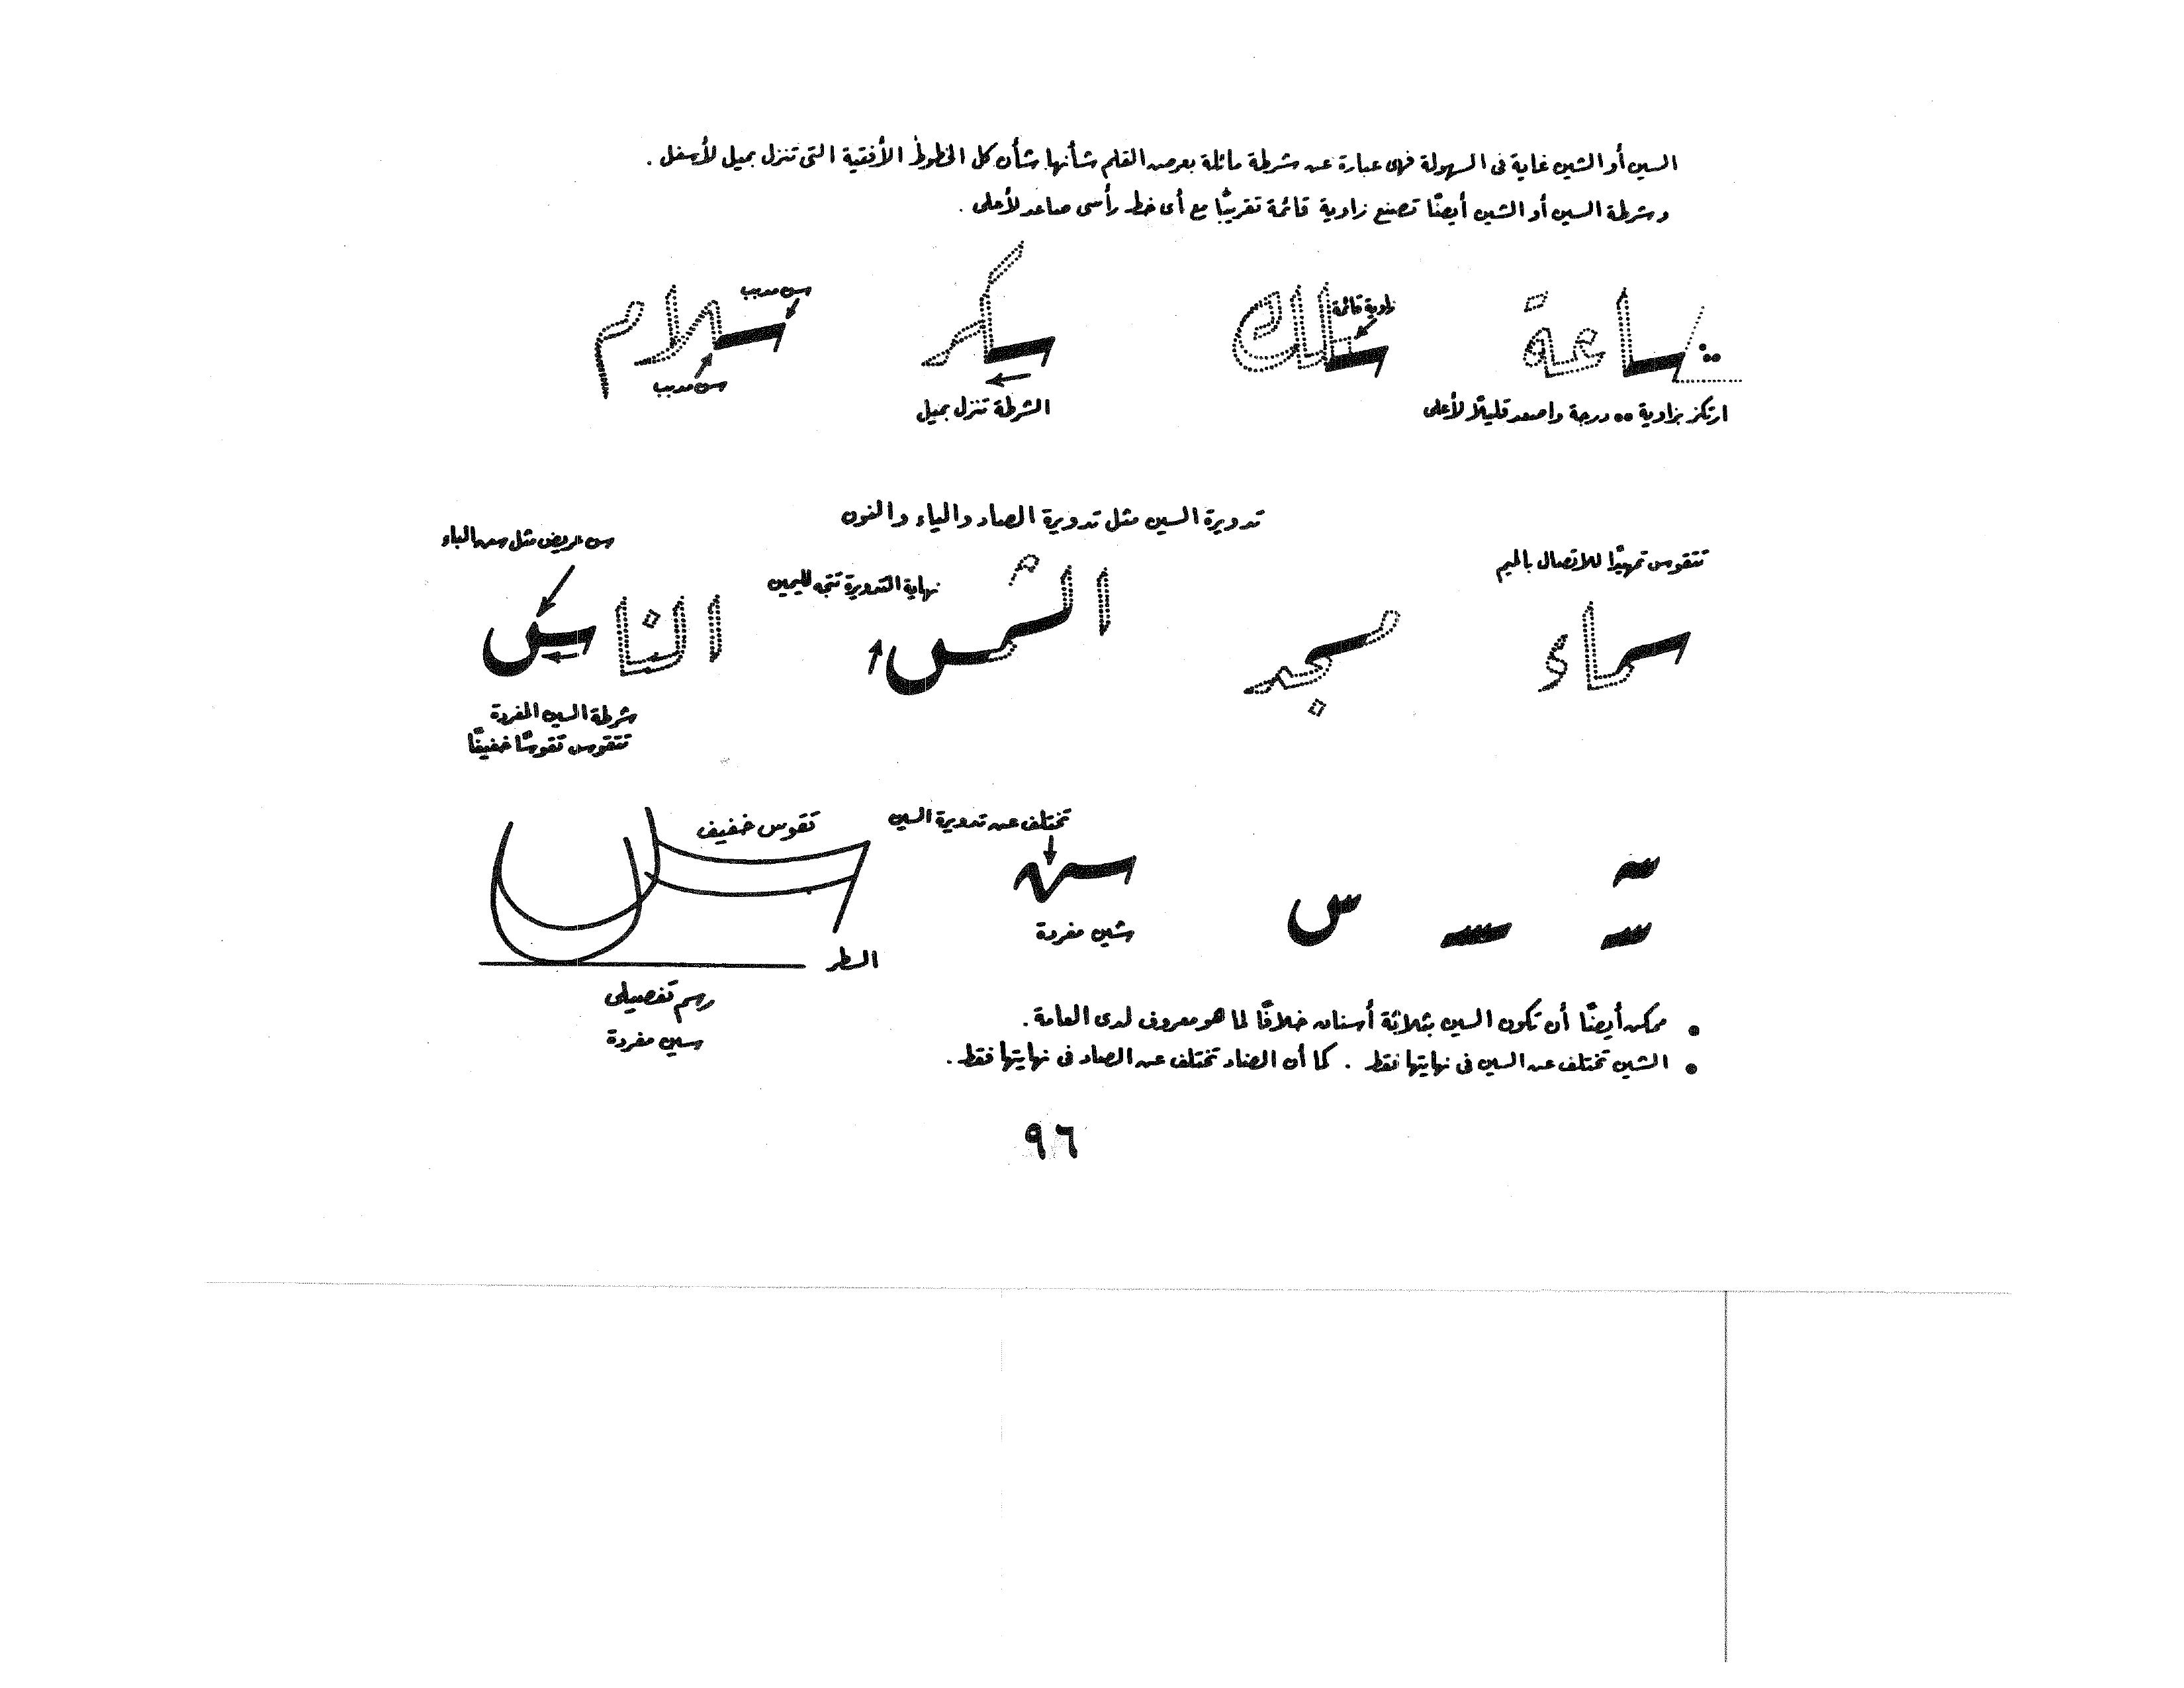 السين أو الشين غاية فى السهولة فهى عبارة عن شرطة مائلة بعرض القلم شأنها شأن كل الخطوط الأفقية التى تنزل بميل لأسفل .
وشرطة السين أو الشين أيضًا تصنع زاوية قائمة تقريبًا مع أى خط رأسى صاعد لأعلى .
ساعة
زاوية قائمة
سكر
سن مدبب
سلام
سن مدبب
ارتكز بزاوية ٥٥ درجة واصعد قليلًا لأعلى
الشرطة تنزل بميل
تدويرة السين مثل تدويرة الصاد والياء والنون
تتقوس تمهيدًا للاتصال بالميم
نهاية التدويرة تتجه لليمين
سن عريض مثل سن الباء
سماء
الشمس
الناس
شرطة السين المفردة
تتقوس تقوسًا خفيفًا
تختلف عن تدويرة السين
تقوس خفيف
س
شين مفردة
السطر
رسم تفصيلى
سين مفردة
• ممكن أيضًا أن تكون السين بثلاثة أسنان خلافًا لما هو معروف لدى العامة .
• الشين تختلف عن السين فى نهايتها فقط . كما أن الضاد تختلف عن الصاد فى نهايتها فقط .
٩٦